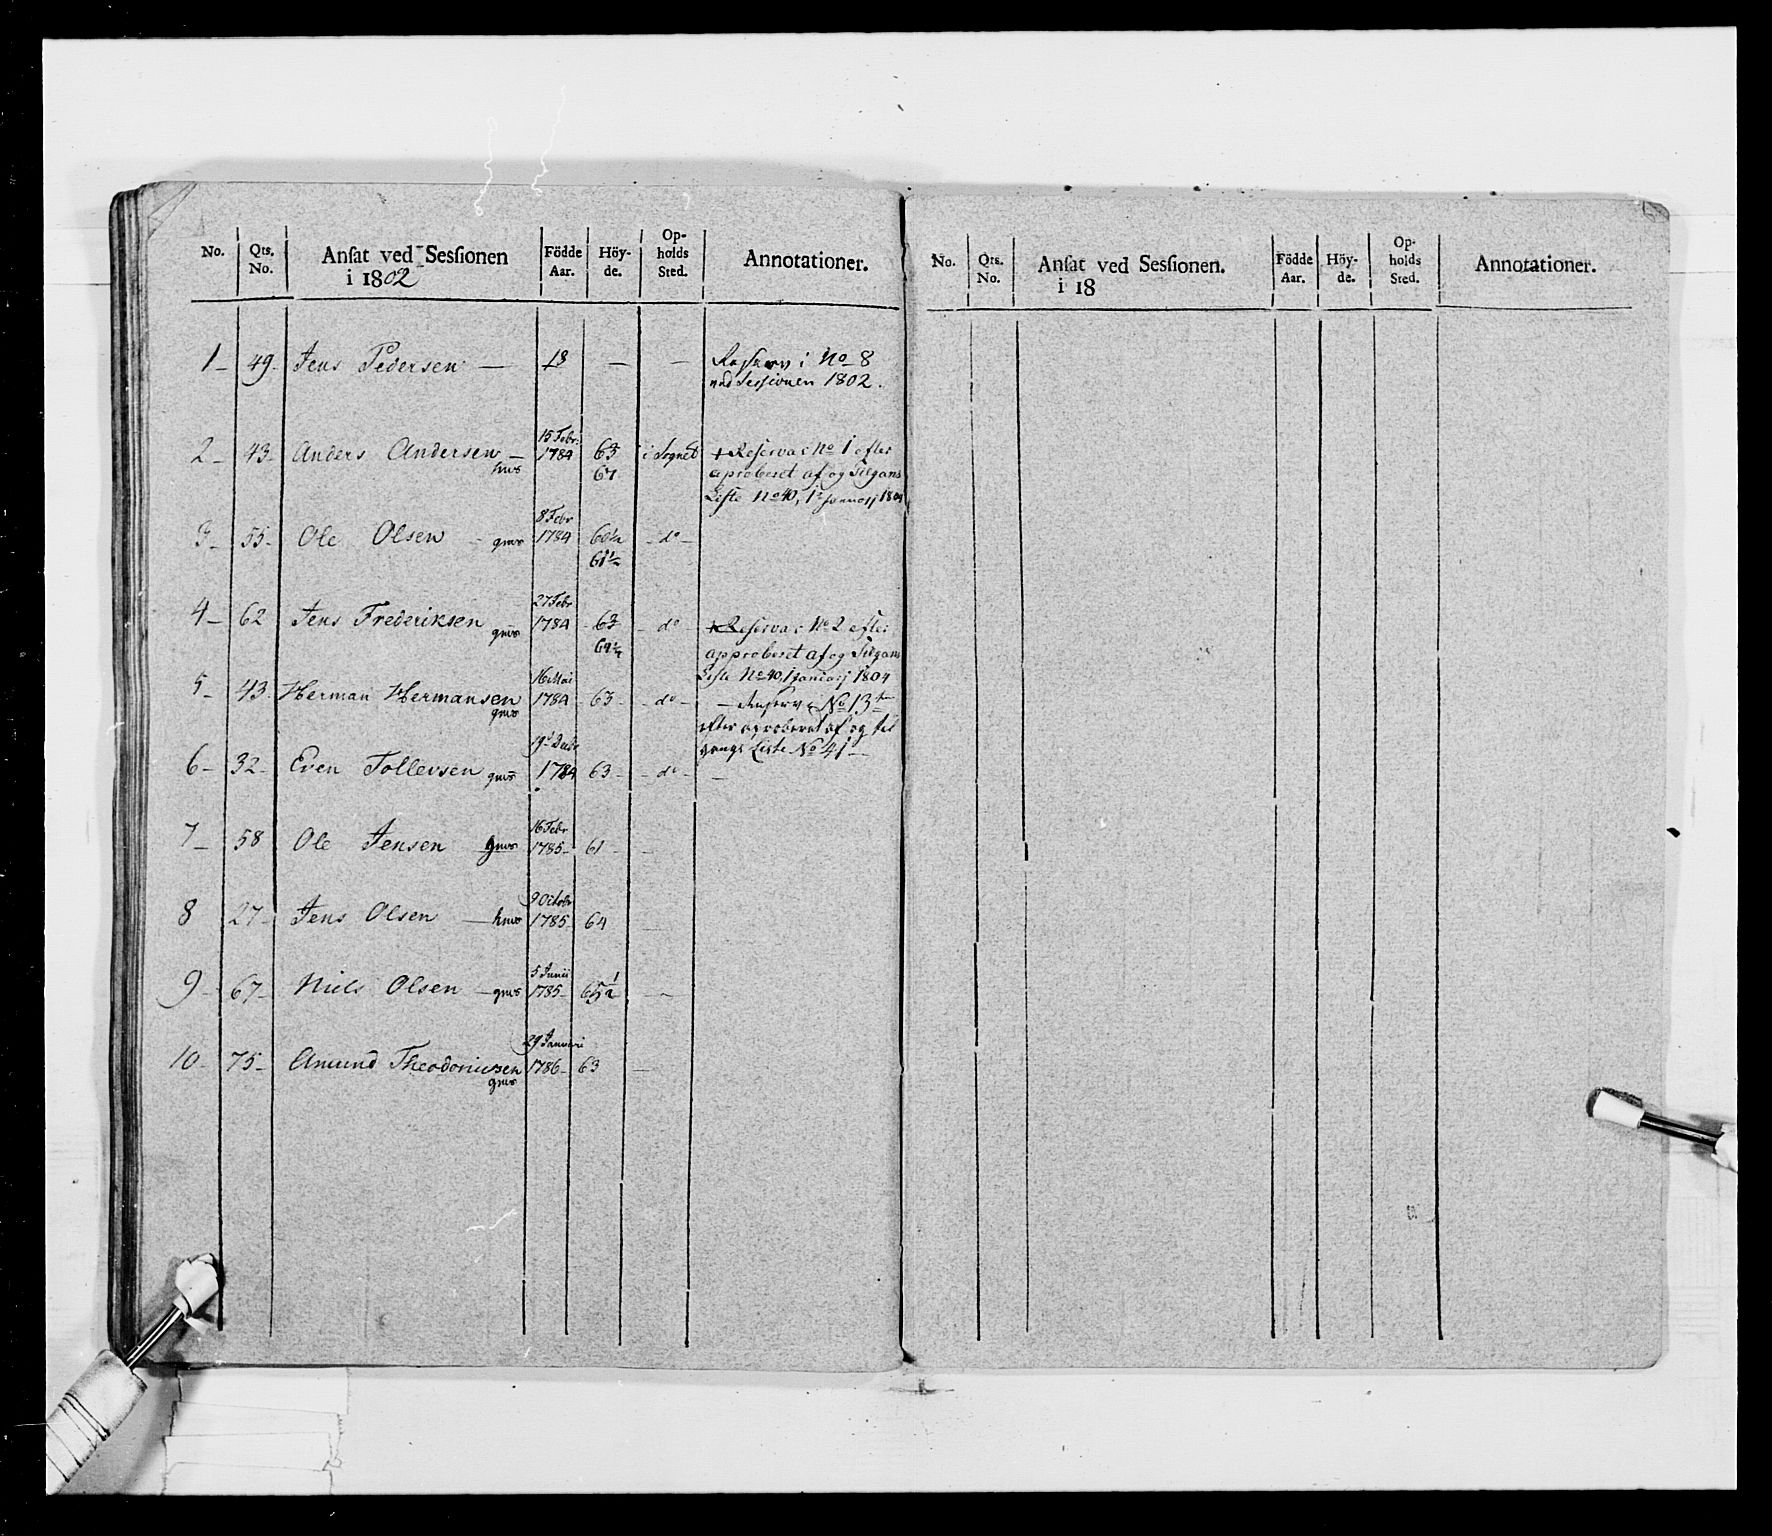 No. Qts. No. Ansat ved Sessionen i 1802 Födde Aar. Höy-de. Op-holds Sted. Annotationer.
1 49 Jens Pedersen — 18 — — Reserv i No 8
ved Sessionen 1802.
15 Febr:
2 43 Anders Andersen 1784 63 i Sognet Reserva: No 1 efter
hmd 64 aproberet af og Tilgans
Liste No 40, 1 Januarj 1804
8 Febr
3 55 Ole Olsen gmd 1784 60½ do
61½
27 Febr
4 62 Jens Frederiksen gmd 1784 63 do Reserva: No 2 efter
64¼ approberet af og Tilgans
Liste No 40, 1 Januarj 1804
16 Mai
5 43 Herman Hermansen gmd 1784 63 do Reserve No 13
efter aproberet af og til
gangs Liste No 41
19 Decbr
6 32 Even Tollevsen gmd 1784 63 do —
16 Febr
7 58 Ole Jensen gmd 1785 61 —
9 Octobr
8 27 Jens Olsen hmd 1785 64
5 Junii
9 67 Niels Olsen gmd 1785 65½ —
29 Januari
10 75 Amund Theodoriusen gmd 1786 63 —
No. Qts. No. Ansat ved Sessionen. i 18 Födde Aar. Höy-de. Op-holds Sted. Annotationer.